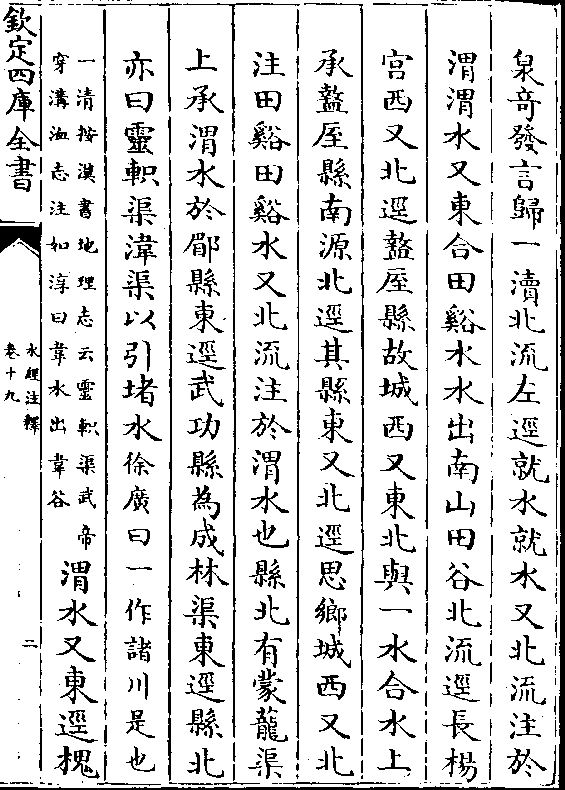 泉竒發言歸一瀆北流左逕就水就水又北流注於
渭渭水又東合田谿水水出南山田谷北流逕長楊
宮西又北逕盩厔縣故城西又東北與一水合水上
承盩厔縣南源北逕其縣東又北逕思鄉城西又北
注田谿田谿水又北流注於渭水也縣北有蒙蘢渠
上承渭水於郿縣東逕武功縣為成林渠東逕縣北
亦曰靈軹渠湋渠以引堵水徐廣曰一作諸川是也
一清按漢書地理志云靈軹渠武帝
穿溝洫志注如淳曰韋水出韋谷
渭水又東逕槐
欽定四庫全書
水經注釋
卷十九
二